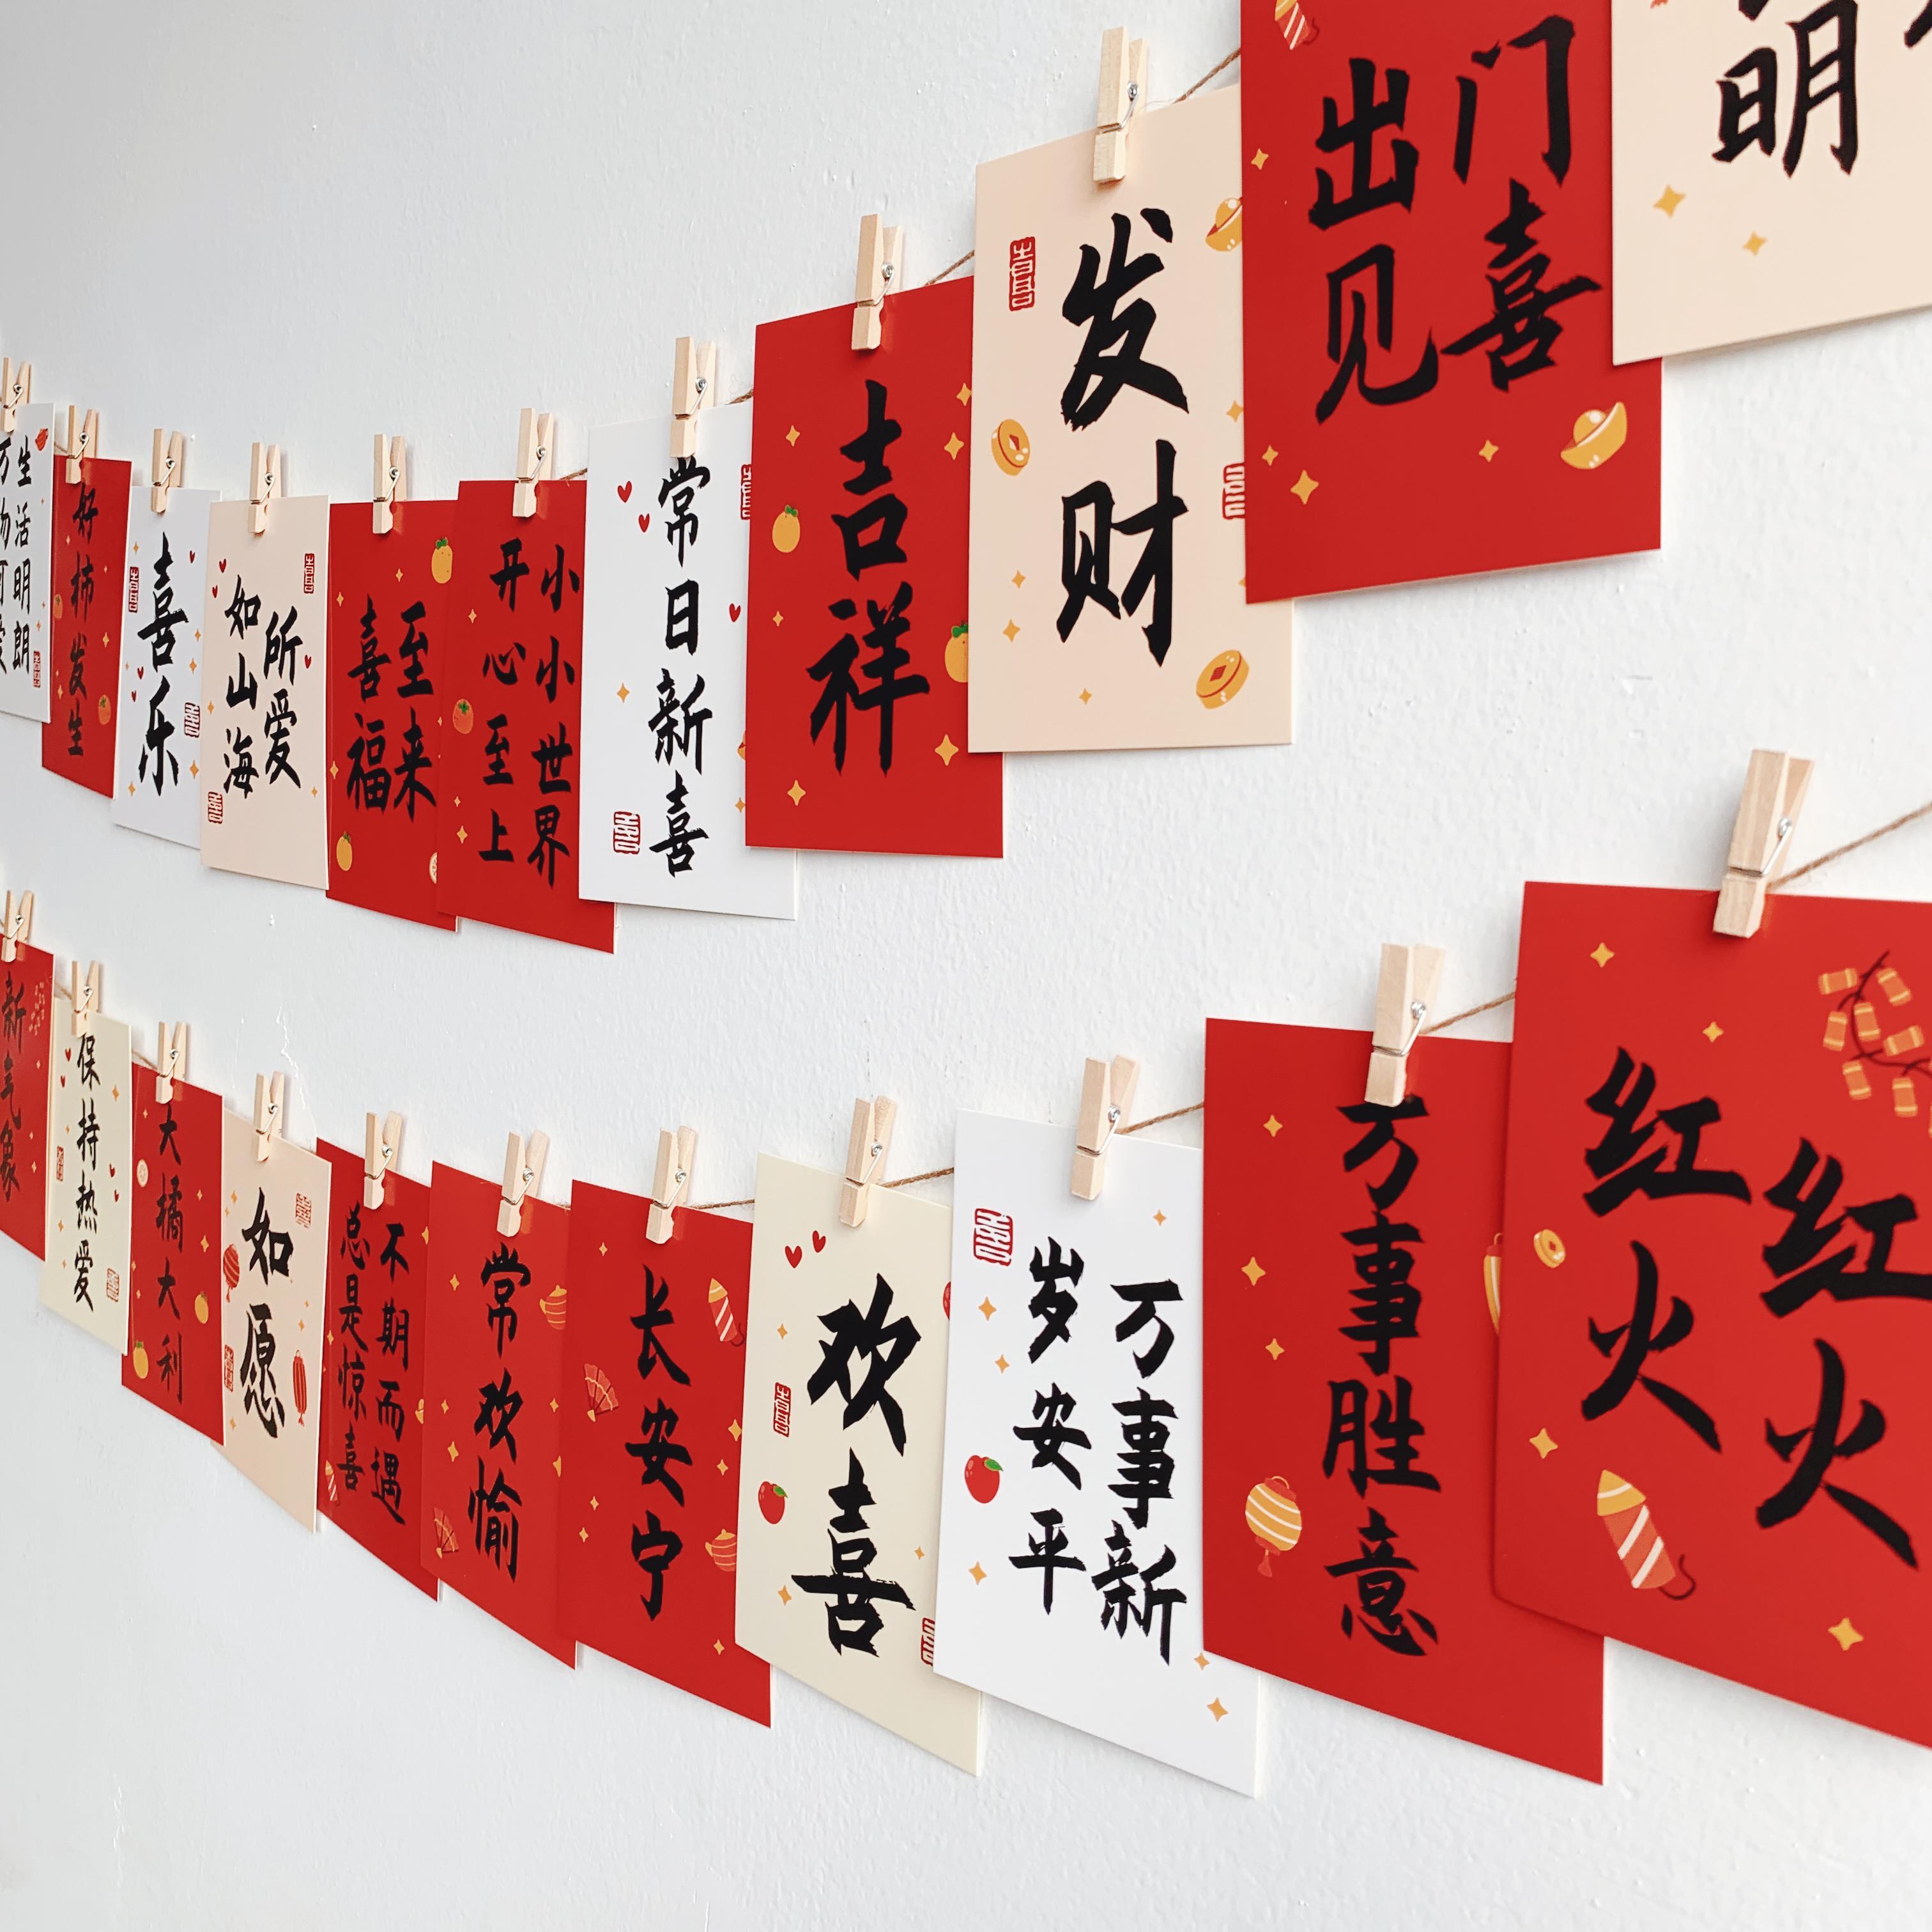 生活明朗
万物可爱
好柿发生
喜乐
所爱
如山海
喜至
福来
小小世界
开心至上
常日新喜
吉祥
发财
出门
见喜
明
新气象
保持热爱
大橘大利
如愿
不期而遇
总是惊喜
常欢愉
长安宁
欢喜
万事新
岁安平
万事胜意
红红
火火